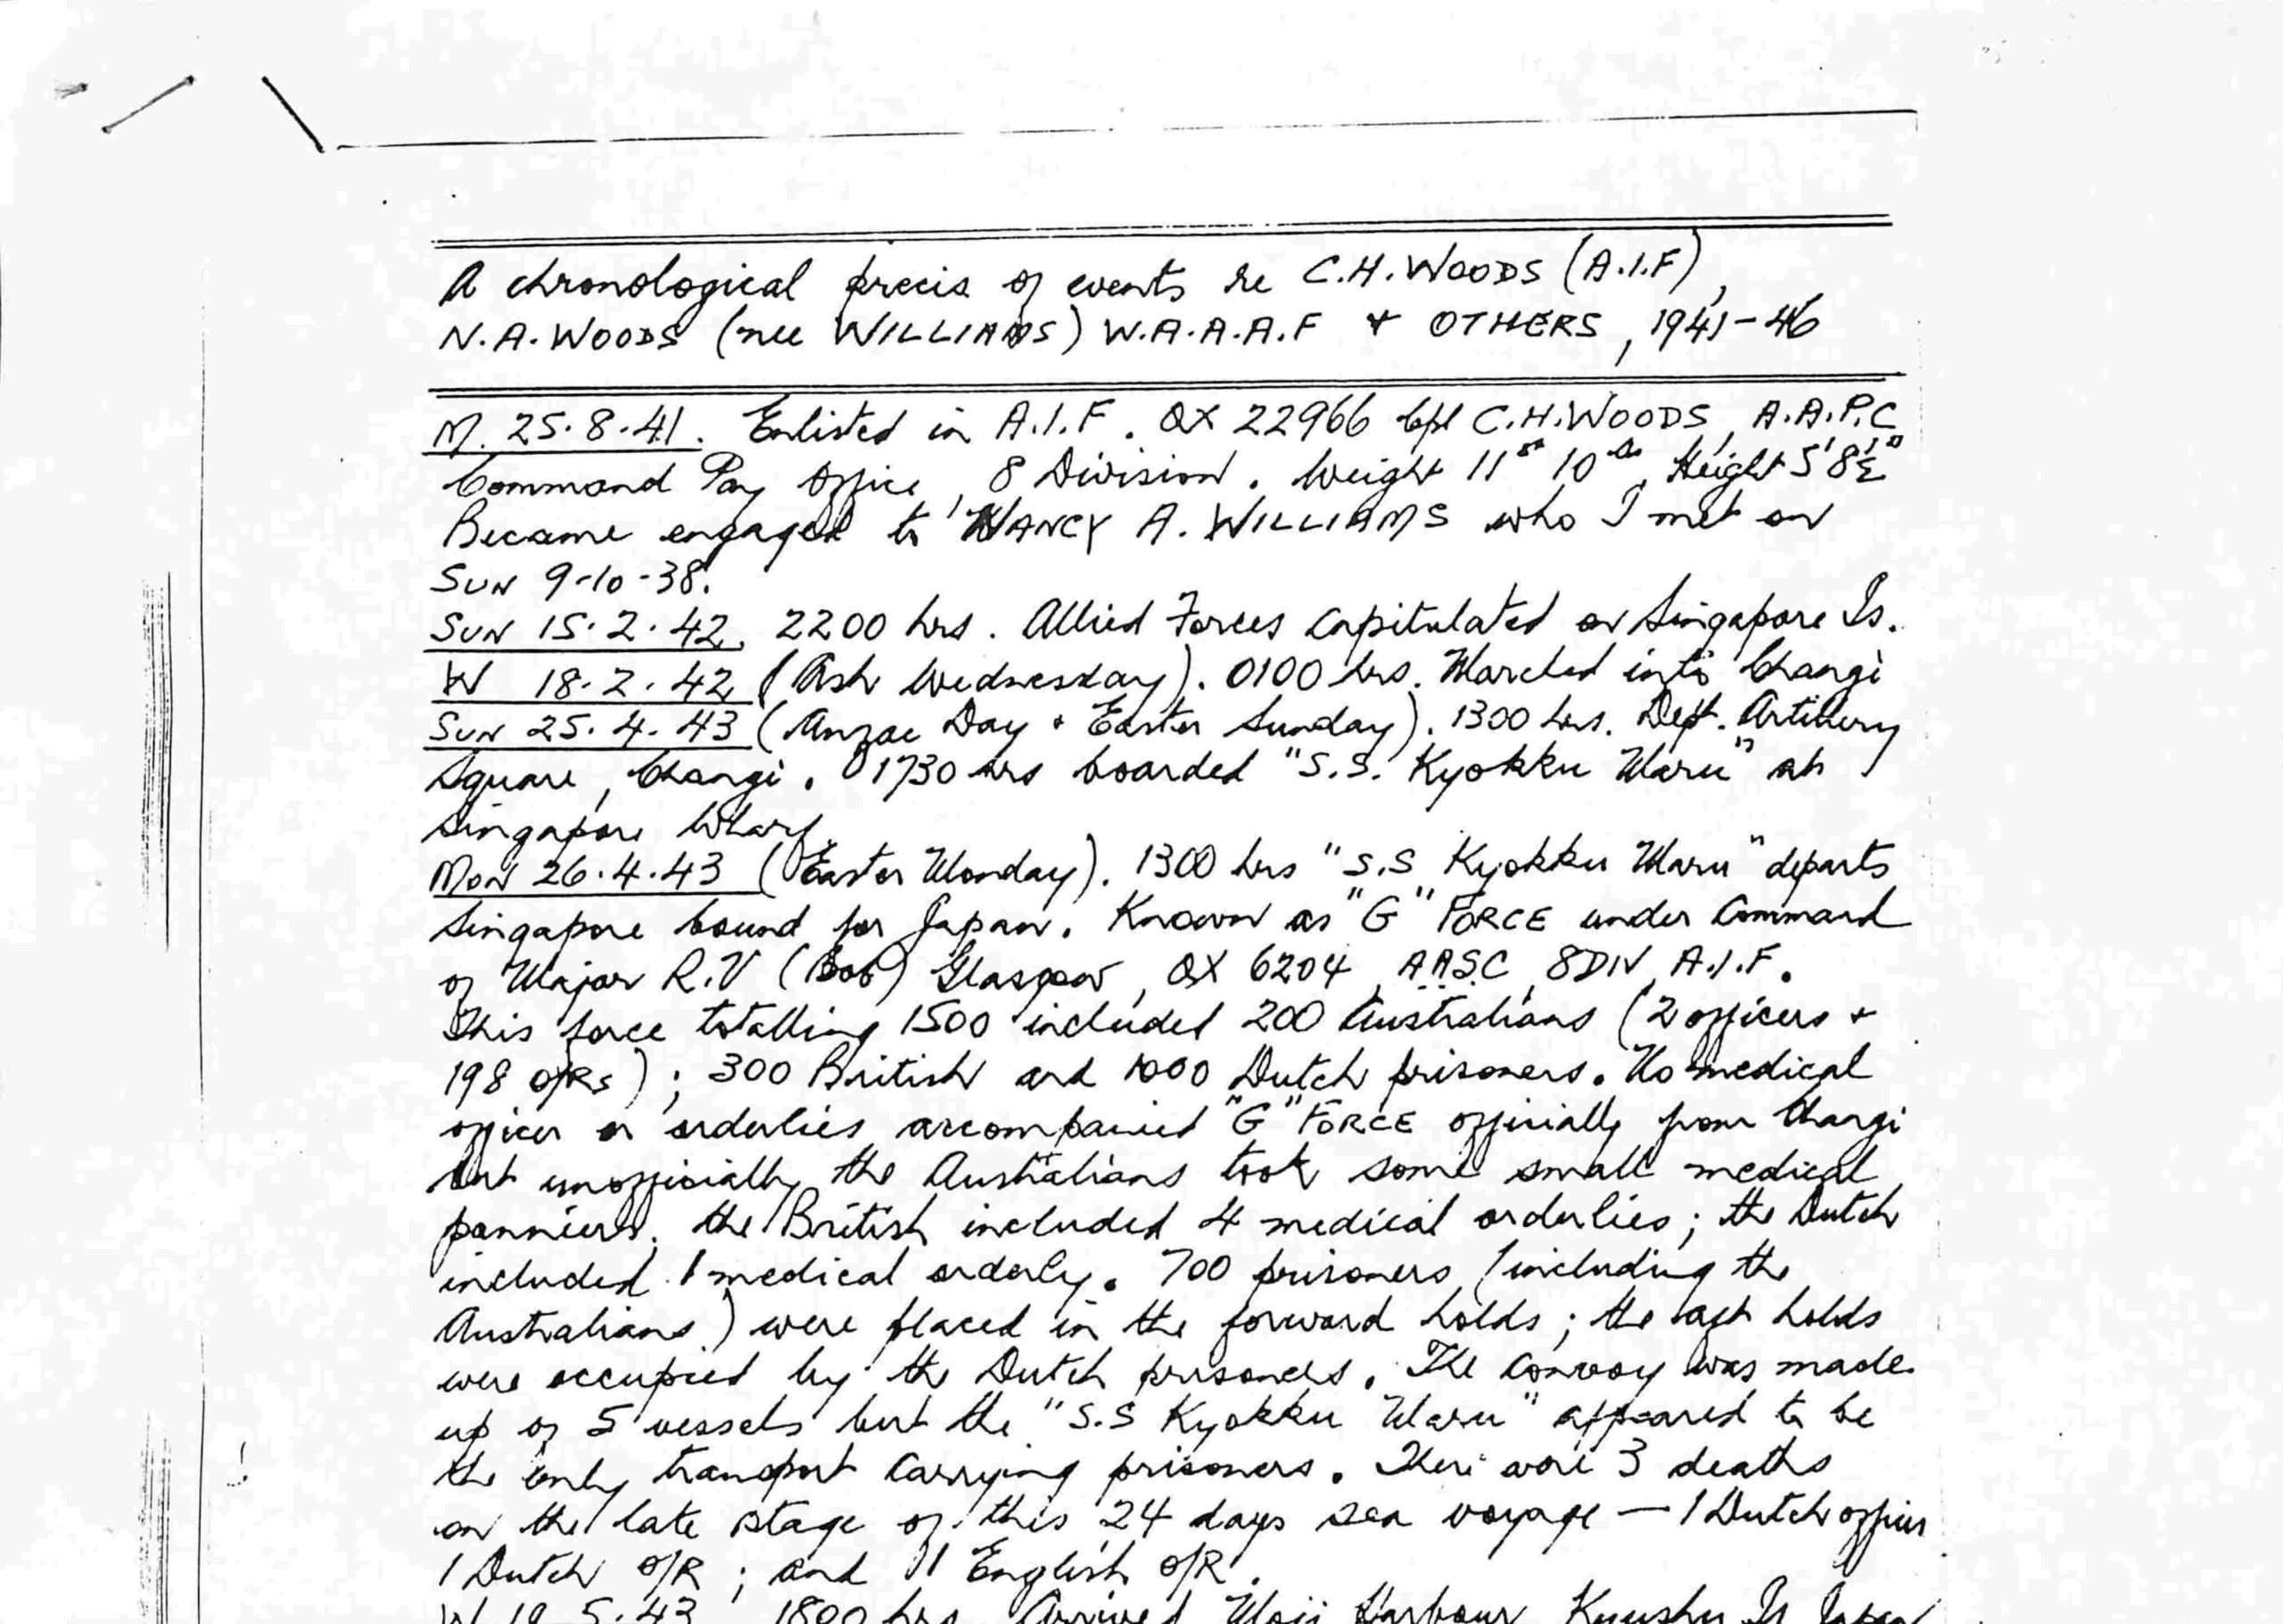 A chronological precis of events re C.H. WOODS (A.I.F),
N.A. WOODS (nee WILLIAMS) W.A.A.A.F + OTHERS, 1941-46
M. 25.8.41. Enlisted in A.I.F. QX 22966 Cpl C.H. WOODS, A.A.P.C
Command Pay Office, 8 Division. Weight 11st 10lbs, Height 5'8½"
Became engaged to NANCY A. WILLIAMS who I met on
SUN 9-10-38.
SUN 15.2.42, 2200 hrs. Allied Forces Capitulated on Singapore Is.
W 18.2.42 (Ash Wednesday). 0100 hrs. Marched into Changi
SUN 25.4.43 (Anzac Day & Easter Sunday). 1300 hrs. Dept. Artillery
Square, Changi. 1730 hrs boarded "S.S. Kyokku Maru" at
Singapore Wharf.
MON 26.4.43 (Easter Monday). 1300 hrs "S.S Kyokku Maru" departs
Singapore bound for Japan. Known as "G" FORCE under Command
of Major R.V (Bob) Glasgow, QX 6204, A.A.S.C, 8 DIV, A.I.F.
This force totalling 1500 included 200 Australians (2 officers +
198 O/Rs); 300 British and 1000 Dutch prisoners. No medical
officer or orderlies accompanied "G" FORCE officially from Changi
but unofficially the Australians took some small medical
panniers, the British included 4 medical orderlies; the Dutch
included 1 medical orderly. 700 prisoners (including the
Australians) were placed in the forward holds; the aft holds
were occupied by the Dutch prisoners. The Convoy was made
up of 5 vessels but the "S.S Kyokku Maru" appeared to be
the only transport Carrying prisoners. There were 3 deaths
on the late stage of this 24 days sea voyage — 1 Dutch officer
1 Dutch O/R; and 1 English O/R.
W 19.5.43 1800 hrs. Arrived Moji Harbour, Kyushu Is Japan